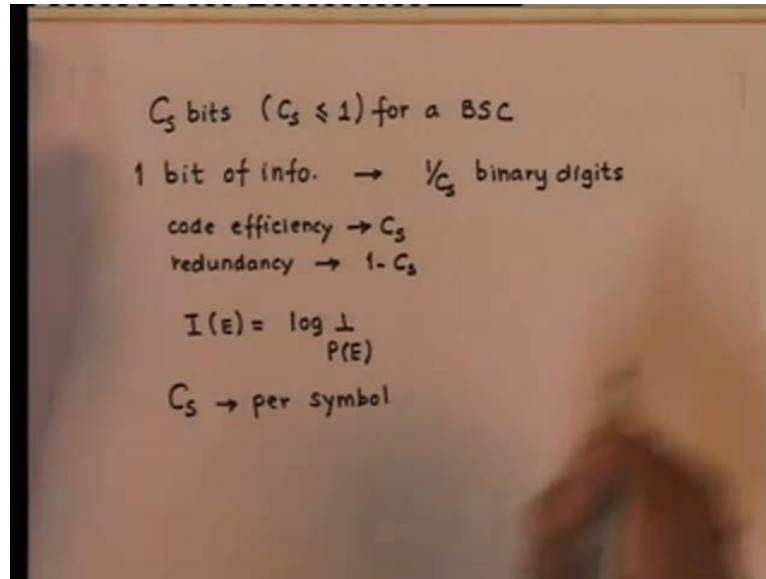 Cₛ bits (Cₛ ≤ 1) for a BSC
1 bit of info. → 1/Cₛ binary digits
code efficiency → Cₛ
redundancy → 1- Cₛ
I(E) = log 1/P(E)
Cₛ → per symbol